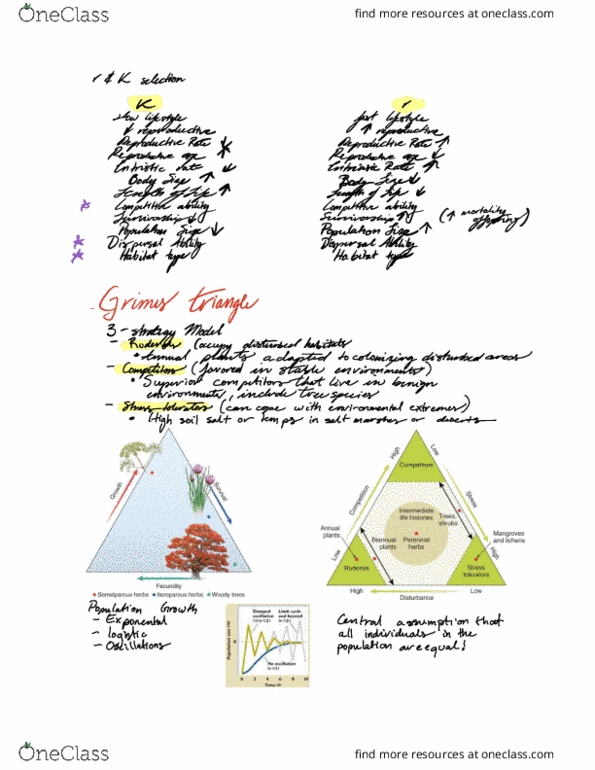 OneClass
find more resources at oneclass.com
r & K selection
K
slow lifestyle
↓ reproductive
Reproductive Rate ↓
Reproductive age
Intristic rate ↓
Body Size ↑
Length of life ↑
Competitive ability
Survivorship
Population Size ↓
Dispersal Ability
Habitat type
r
fast lifestyle
↑ reproductive
Reproductive Rate ↑
Reproductive age ↓
Intristic Rate ↑
Body Size ↓
Length of life ↓
Competitive ability
Survivorship (↑ mortality offspring)
Population Size ↑
Dispersal Ability
Habitat type
Grimes triangle
3-strategy Model
- Ruderals (occupy disturbed habitats
• Annual plants adapted to colonizing disturbed areas
- Competitors (favored in stable environments)
• Superior competitors that live in benign
environments, include tree species
- Stress tolerators (can cope with environmental extremes)
• High soil salt or temps in salt marshes or deserts
Growth
Survival
Fecundity
Semelparous herbs Iteroparous herbs Woody trees
High
Low
Competitors
Competition
Stress
Intermediate
life histories
Trees,
shrubs
Annual
plants
Biennial
plants
Perennial
herbs
Mangroves
and lichens
Low
High
Ruderals
Stress
tolerators
High
Low
Disturbance
Population Growth
- Exponental
- logistic
- Oscillations
Population size (N)
Damped
oscillation
Limit cycle
and beyond
No oscillation
0 2 4 6 8 10
Time (t)
Central assumption that
all individuals in the
population are equal!
OneClass
find more resources at oneclass.com